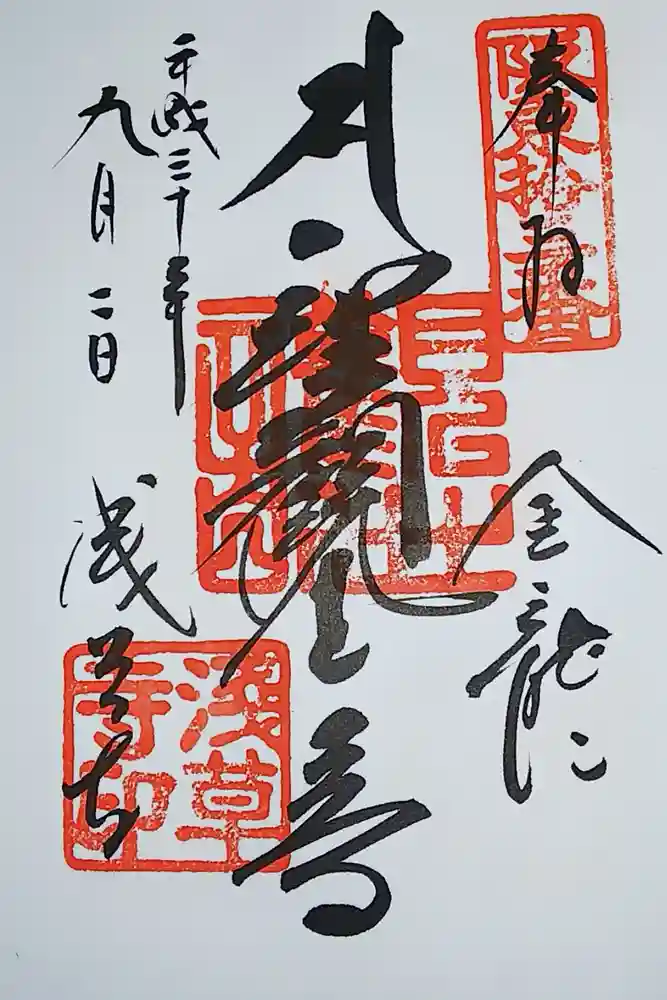 奉拝
阪東拾三番
金龍山
聖観世音
平成三十年
九月二日
浅草寺
淺草寺印